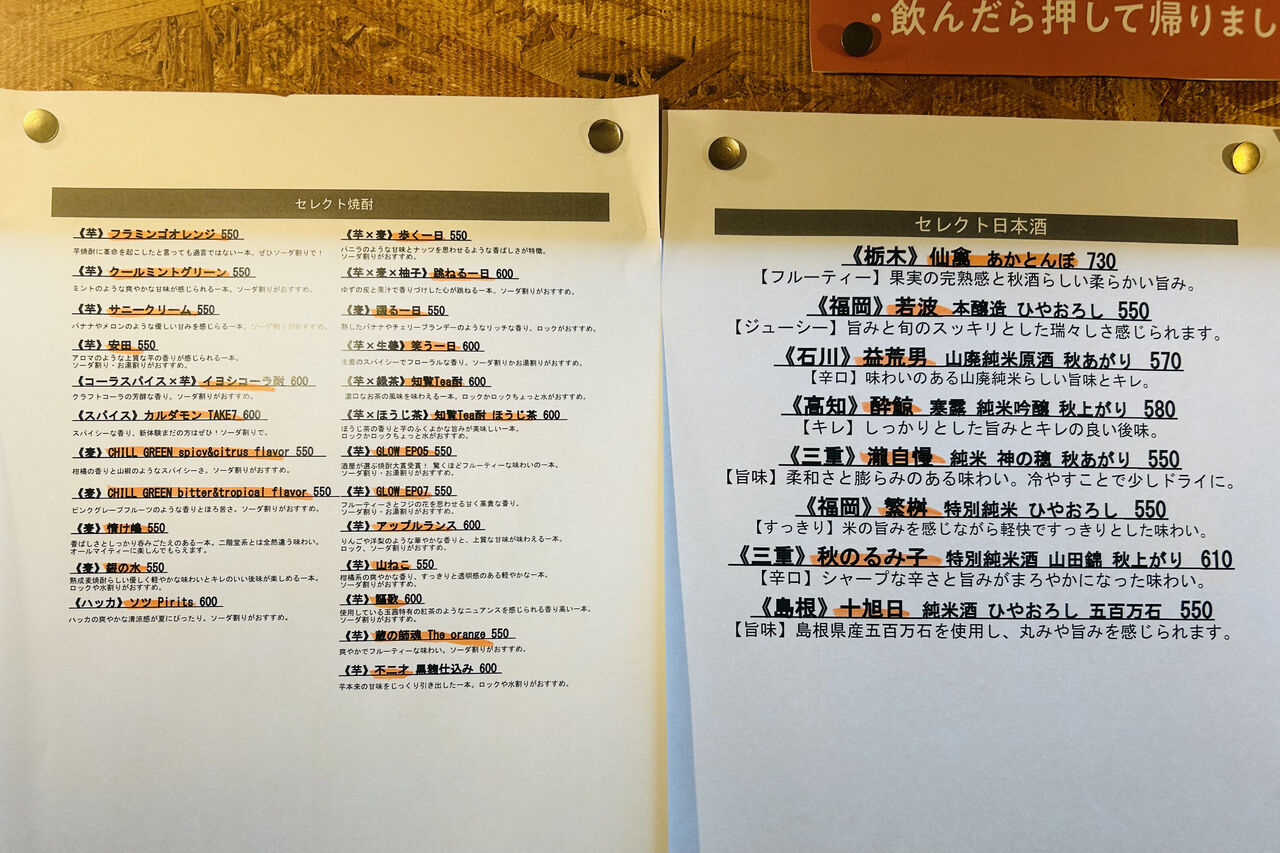 ・飲んだら押して帰りまし
セレクト焼酎
《芋》フラミンゴオレンジ 550
芋焼酎に革命を起こしたと言っても過言ではない一本。ぜひソーダ割りで！
《芋》クールミントグリーン 550
ミントのような爽やかな甘味が感じられる一本。ソーダ割りがおすすめ。
《芋》サニークリーム 550
バナナやメロンのような優しい甘みを感じらる一本。ソーダ割りがおすすめ。
《芋》安田 550
アロマのような上質な芋の香りが感じられる一本。
ソーダ割り・お湯割りがおすすめ。
《コーラスパイス×芋》イヨシコーラ酎 600
クラフトコーラの芳醇な香り。ソーダ割りがおすすめ。
《スパイス》カルダモン TAKE7 600
スパイシーな香り、新体験まだの方はぜひ！ソーダ割りで。
《麦》CHILL GREEN spicy&citrus flavor 550
柑橘の香りと山椒のようなスパイシーさ。ソーダ割りがおすすめ。
《麦》CHILL GREEN bitter&tropical flavor 550
ピンクグレープフルーツのような香りとほろ苦さ。ソーダ割りがおすすめ。
《麦》情け嶋 550
香ばしさとしっかり呑みごたえのある一本。二階堂系とは全然違う味わい。
オールマイティーに楽しんでもらえます。
《麦》銀の水 550
熟成麦焼酎らしい優しく軽やかな味わいとキレのいい後味が楽しめる一本。
ロックや水割りがおすすめ。
《ハッカ》ソツ Pirits 600
ハッカの爽やかな清涼感が夏にぴったり。ソーダ割りがおすすめ。
《芋×麦》歩く一日 550
バニラのような甘味とナッツを思わせるような香ばしさが特徴。
ソーダ割りがおすすめ。
《芋×麦×柚子》跳ねる一日 600
ゆずの皮と果汁で香りづけした心が跳ねる一本。ソーダ割りがおすすめ。
《麦》國る一日 550
熟したバナナやチェリーブランデーのようなリッチな香り。ロックがおすすめ。
《芋×生姜》笑う一日 600
生姜のスパイシーでフローラルな香り。ソーダ割りかお湯割りがおすすめ。
《芋×緑茶》知覧Tea酎 600
濃口なお茶の風味を味わえる一本。ロックかロックちょっと水がおすすめ。
《芋×ほうじ茶》知覧Tea酎 ほうじ茶 600
ほうじ茶の香りと芋のふくよかな旨みが美味しい一本。
ロックかロックちょっと水がおすすめ。
《芋》GLOW EP05 550
酒屋が選ぶ焼酎大賞受賞！ 驚くほどフルーティーな味わいの一本。
ソーダ割り・お湯割りがおすすめ。
《芋》GLOW EP07 550
フルーティーさとフジの花を思わせる甘く高貴な香り。
ソーダ割り・お湯割りがおすすめ。
《芋》アップルランス 600
りんごや洋梨のような華やかな香りと、上質な甘味が味わえる一本。
ロック、ソーダ割りがおすすめ。
《芋》山ねこ 550
柑橘系の爽やかな香り、すっきりと透明感のある軽やかな一本。
ソーダ割りがおすすめ。
《芋》謳歌 600
使用している玉茜特有の紅茶のようなニュアンスを感じられる香り高い一本。
ソーダ割りがおすすめ。
《芋》蔵の師魂 The orange 550
爽やかでフルーティーな味わい。ソーダ割りがおすすめ。
《芋》不二才 黒麹仕込み 600
芋本来の甘味をじっくり引き出した一本。ロックや水割りがおすすめ。
セレクト日本酒
《栃木》仙禽 あかとんぼ 730
【フルーティー】果実の完熟感と秋酒らしい柔らかい旨み。
《福岡》若波 本醸造 ひやおろし 550
【ジューシー】旨みと旬のスッキリとした瑞々しさ感じられます。
《石川》益荒男 山廃純米原酒 秋あがり 570
【辛口】味わいのある山廃純米らしい旨味とキレ。
《高知》酔鯨 寒露 純米吟醸 秋上がり 580
【キレ】しっかりとした旨みとキレの良い後味。
《三重》瀧自慢 純米 神の穂 秋あがり 550
【旨味】柔和さと膨らみのある味わい。冷やすことで少しドライに。
《福岡》繁桝 特別純米 ひやおろし 550
【すっきり】米の旨みを感じながら軽快ですっきりとした味わい。
《三重》秋のるみ子 特別純米酒 山田錦 秋上がり 610
【辛口】シャープな辛さと旨みがまろやかになった味わい。
《島根》十旭日 純米酒 ひやおろし 五百万石 550
【旨味】島根県産五百万石を使用し、丸みや旨みを感じられます。